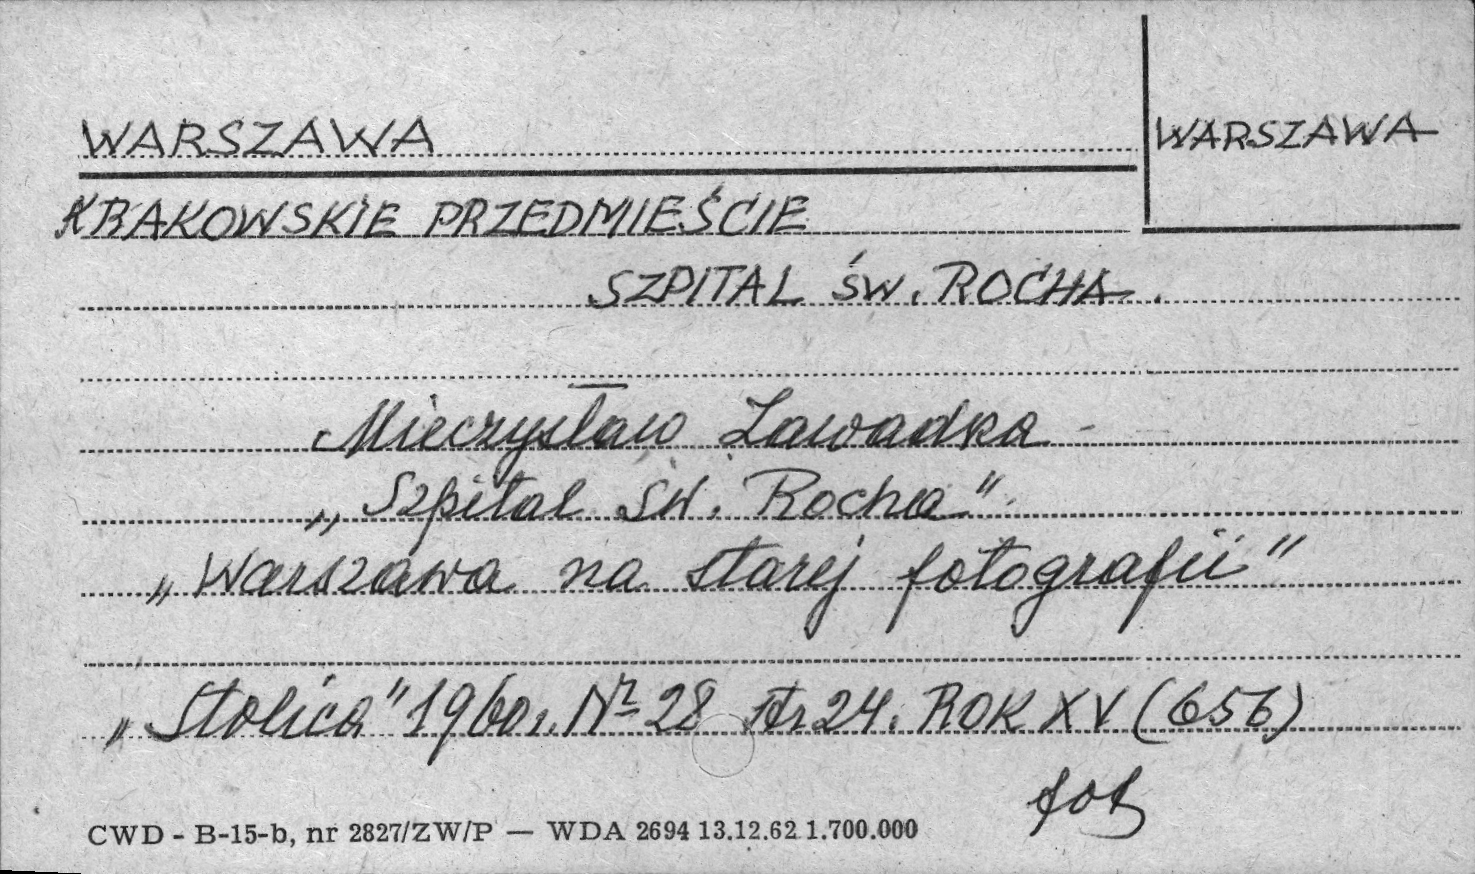 WARSZAWA
WARSZAWA
KRAKOWSKIE PRZEDMIEŚCIE
SZPITAL ŚW. ROCHA.
Mieczysław Zawadka -
„Szpital Św. Rocha”
„Warszawa na starej fotografii”
„Stolica” 1960r. Nr 28 str 24. ROK XV (656)
fot
CWD - B-15-b, nr 2827/ZW/P — WDA 2694 13.12.62 1.700.000